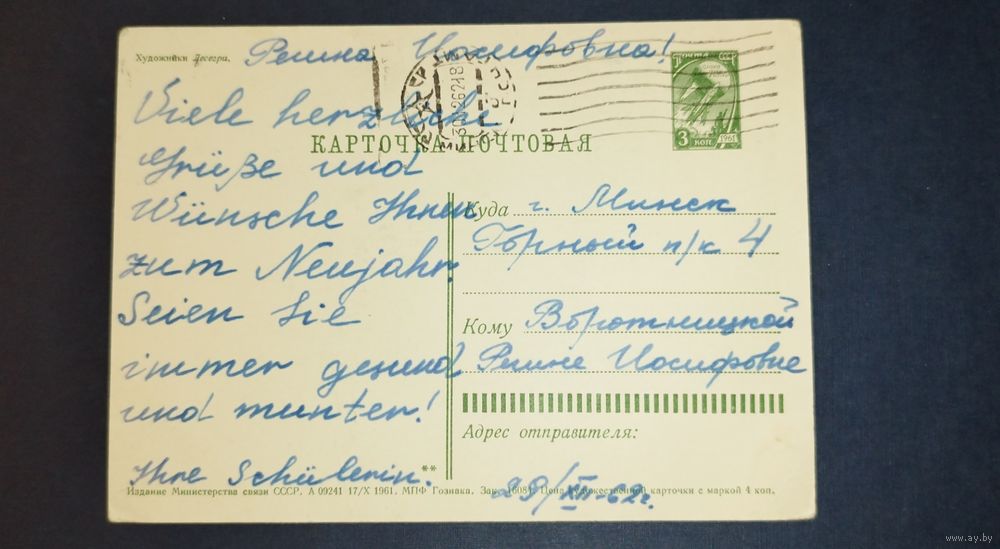 Художники Лесегри,
Римма Иосифовна!
ПОЧТА СССР
3 КОП 1961
Viele herzliche
КАРТОЧКА ПОЧТОВАЯ
Grüße und
Wünsche Ihnen
zum Neujahr.
Seien Sie
immer gesund
und munter!
Ihre Schülerin.
**
Куда г. Минск
Горный п/к 4
Кому Воротницкой
Римме Иосифовне
Адрес отправителя:
29/XII-62г.
Издание Министерства связи СССР. А 09241 17/X 1961. МПФ Гознака. Зак. 16081. Цена художественной карточки с маркой 4 коп.
www.ay.by